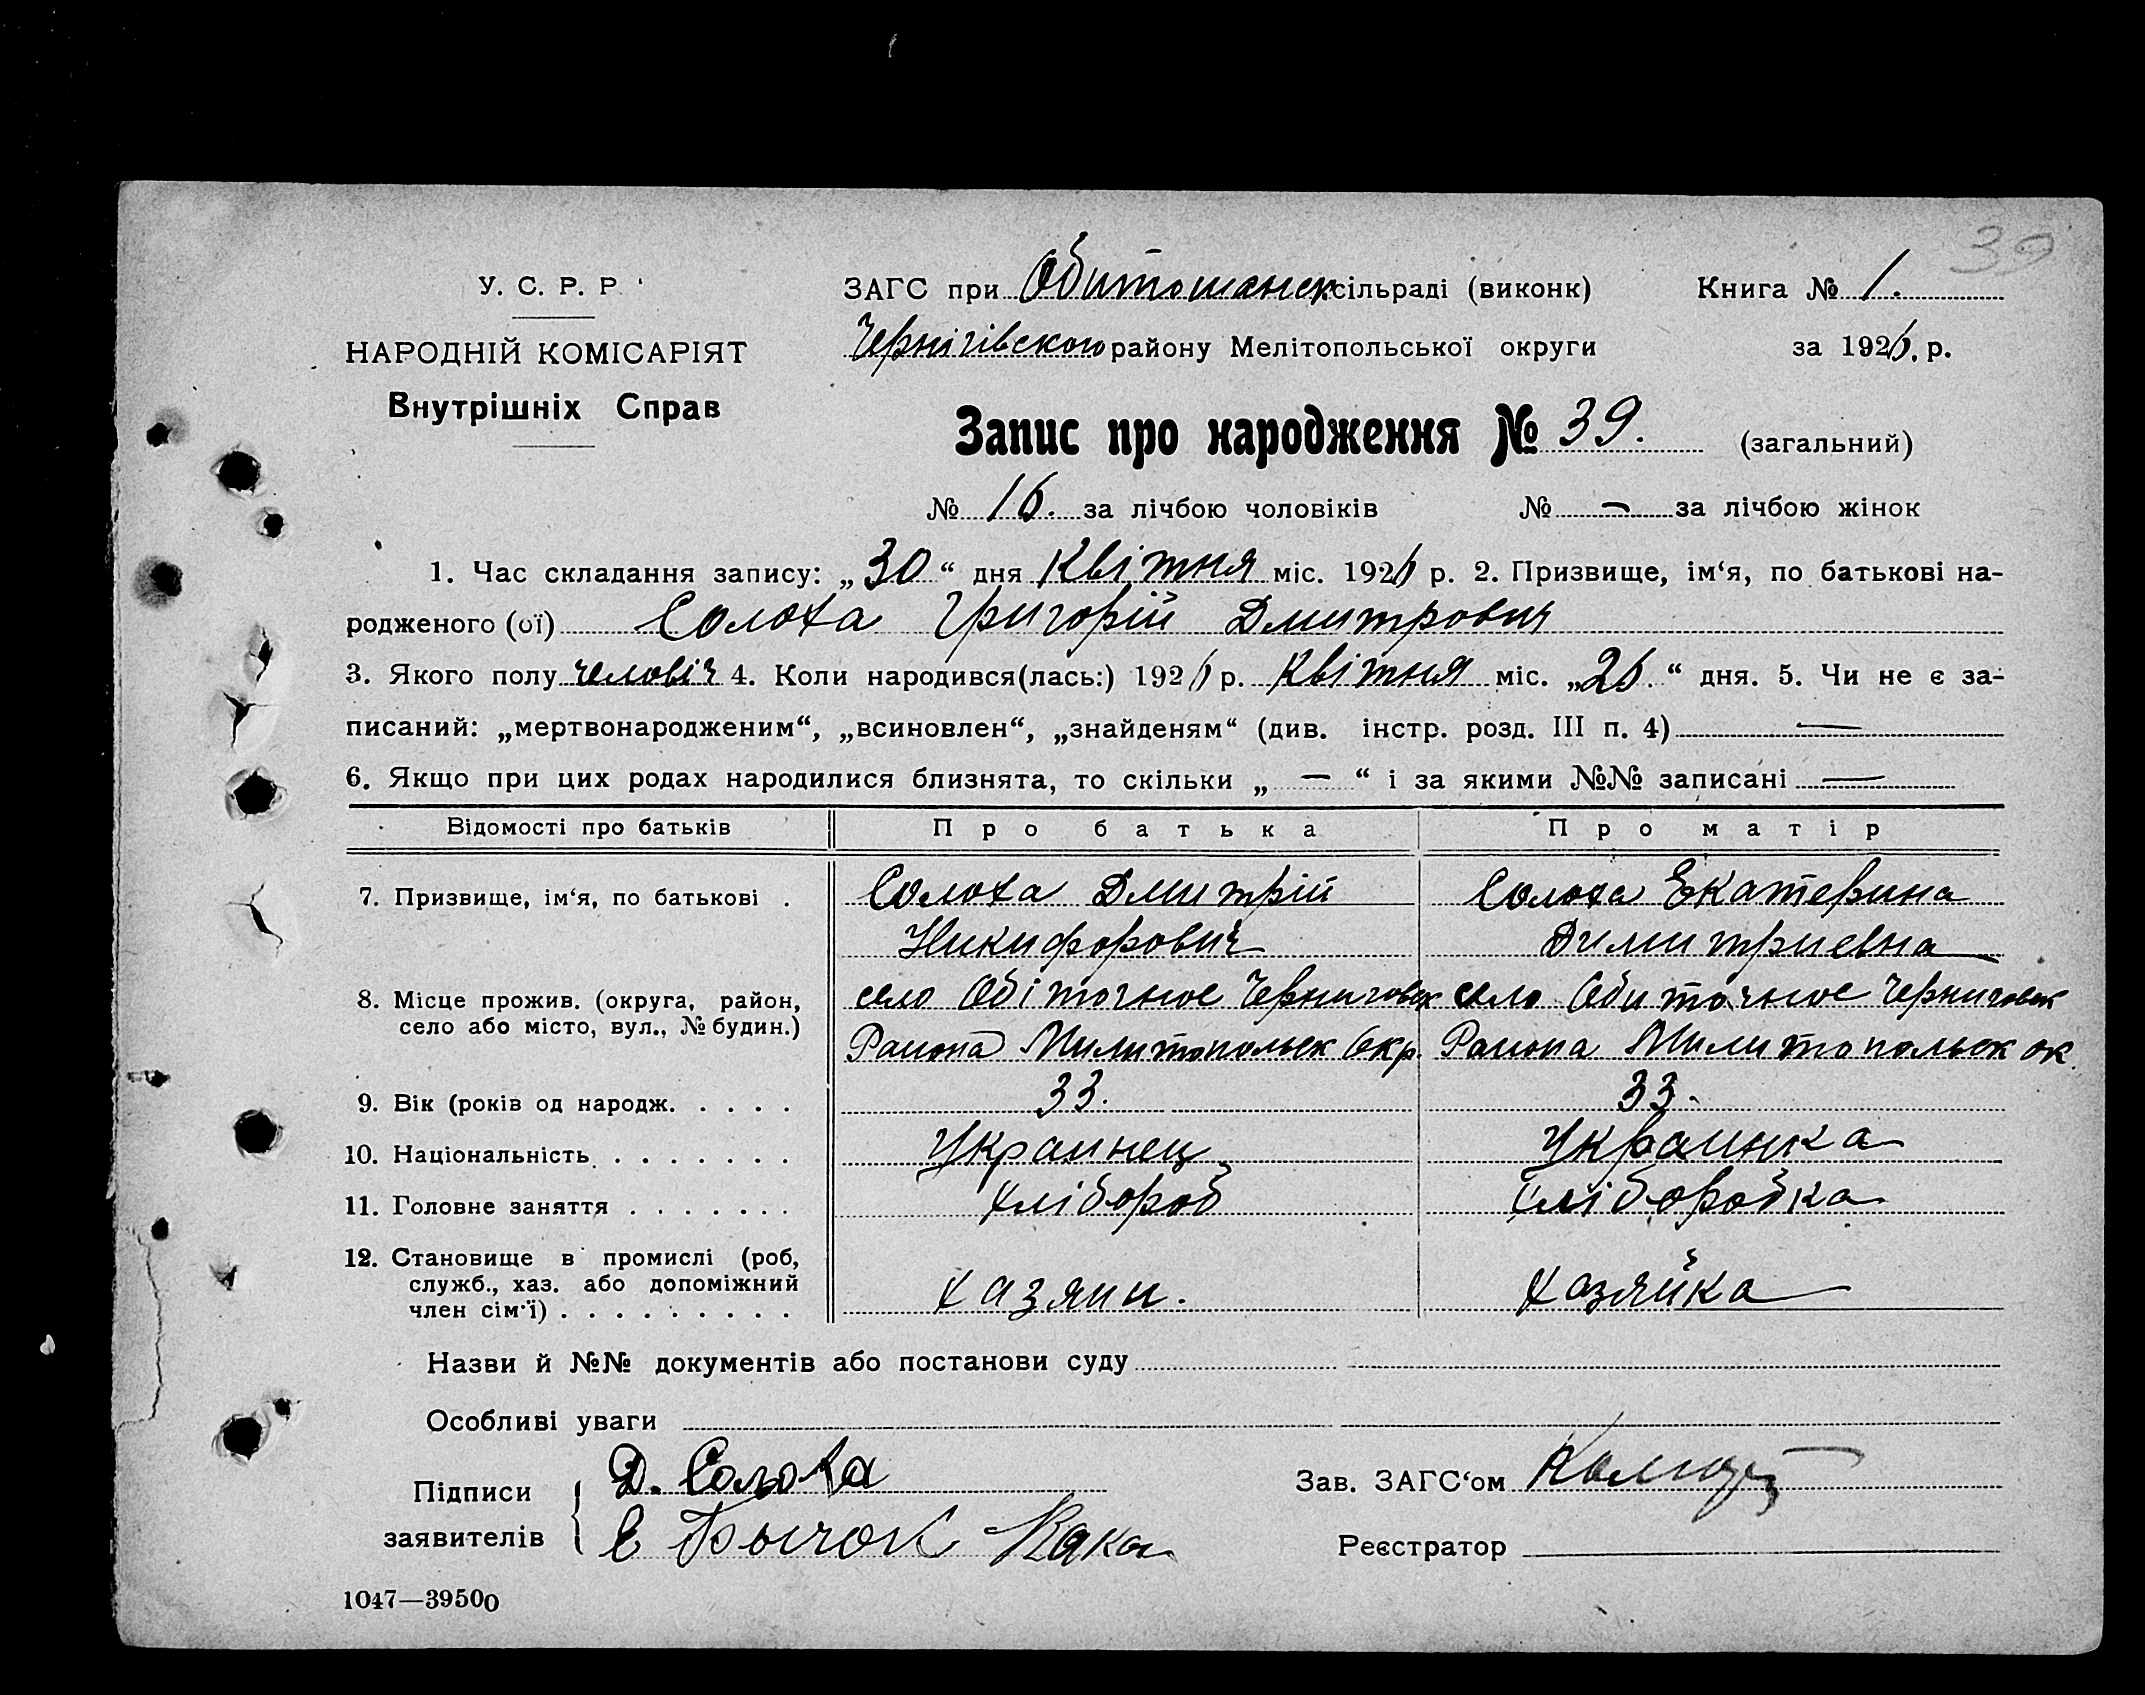 39
У. С. Р. Р.
НАРОДНІЙ КОМІСАРІЯТ
Внутрішніх Справ
ЗАГС при Обитошанск сільраді (виконк)
Книга № 1.
Чернігівского району Мелітопольської округи
за 1926. р.
Запис про народження № 39. (загальний)
№ 16. за лічбою чоловіків № — за лічбою жінок
1. Час складання запису: „30“ дня Квітня міс. 1926 р. 2. Призвище, ім‘я, по батькові на-
родженого (ої) Солоха Григорій Дмитрович
3. Якого полу человіч 4. Коли народився(лась:) 1926 р. Квітня міс. „26.“ дня. 5. Чи не є за-
писаний: „мертвонародженим“, „всиновлен“, „знайденям“ (див. інстр. розд. III п. 4) —
6. Якщо при цих родах народилися близнята, то скільки „ — “ і за якими №№ записані —
Відомості про батьків Про батька Про матір
7. Призвище, ім‘я, по батькові . Солоха Дмитрій Солоха Екатерина
Никифорович Димитриевна
8. Місце прожив. (округа, район, село Обіточное Черниговск село Обиточное Черниговск
село або місто, вул., № будин.) Раиона Милитопольск Окр. Раиона Милитопольск ок.
9. Вік (років од народж. . . . . 33. 33.
10. Національність . . . . . . . Украинец Украинка
11. Головне заняття . . . . . . . хлібороб хліборобка
12. Становище в промислі (роб,
служб., хаз. або допоміжний
член сім‘ї) . . . . . . . . . хазяин. хазяйка
Назви й №№ документів або постанови суду
Особливі уваги
Підписи Д. Солоха
заявителів Е Бычок
Зав. ЗАГС‘ом
Реєстратор
1047—39500